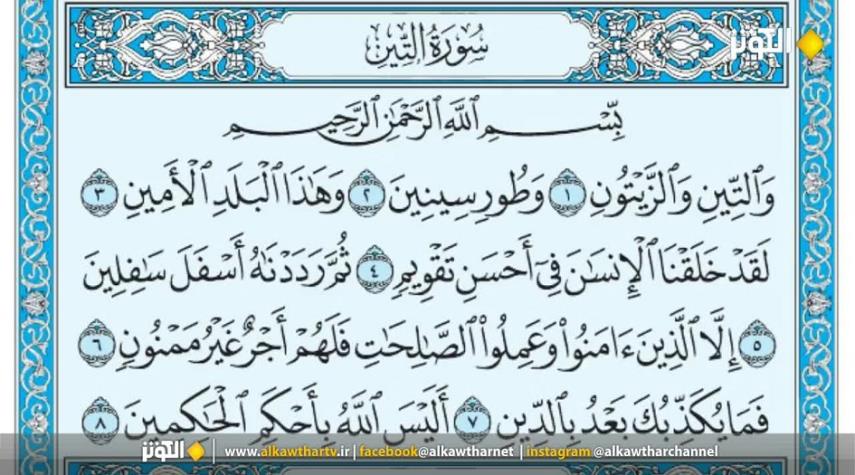 سُورَةُ التِّينِ
الكوثر
بِسْمِ اللَّهِ الرَّحْمَٰنِ الرَّحِيمِ
وَالتِّينِ وَالزَّيْتُونِ ١ وَطُورِ سِينِينَ ٢ وَهَٰذَا الْبَلَدِ الْأَمِينِ ٣
لَقَدْ خَلَقْنَا الْإِنسَانَ فِي أَحْسَنِ تَقْوِيمٍ ٤ ثُمَّ رَدَدْنَاهُ أَسْفَلَ سَافِلِينَ
٥ إِلَّا الَّذِينَ ءَامَنُوا۟ وَعَمِلُوا۟ الصَّالِحَاتِ فَلَهُمْ أَجْرٌ غَيْرُ مَمْنُونٍ ٦
فَمَا يُكَذِّبُكَ بَعْدُ بِالدِّينِ ٧ أَلَيْسَ اللَّهُ بِأَحْكَمِ الْحَاكِمِينَ ٨
الكوثر | www.alkawthartv.ir | facebook@alkawtharnet | instagram @alkawtharchannel
سُورَةُ التِّينِ